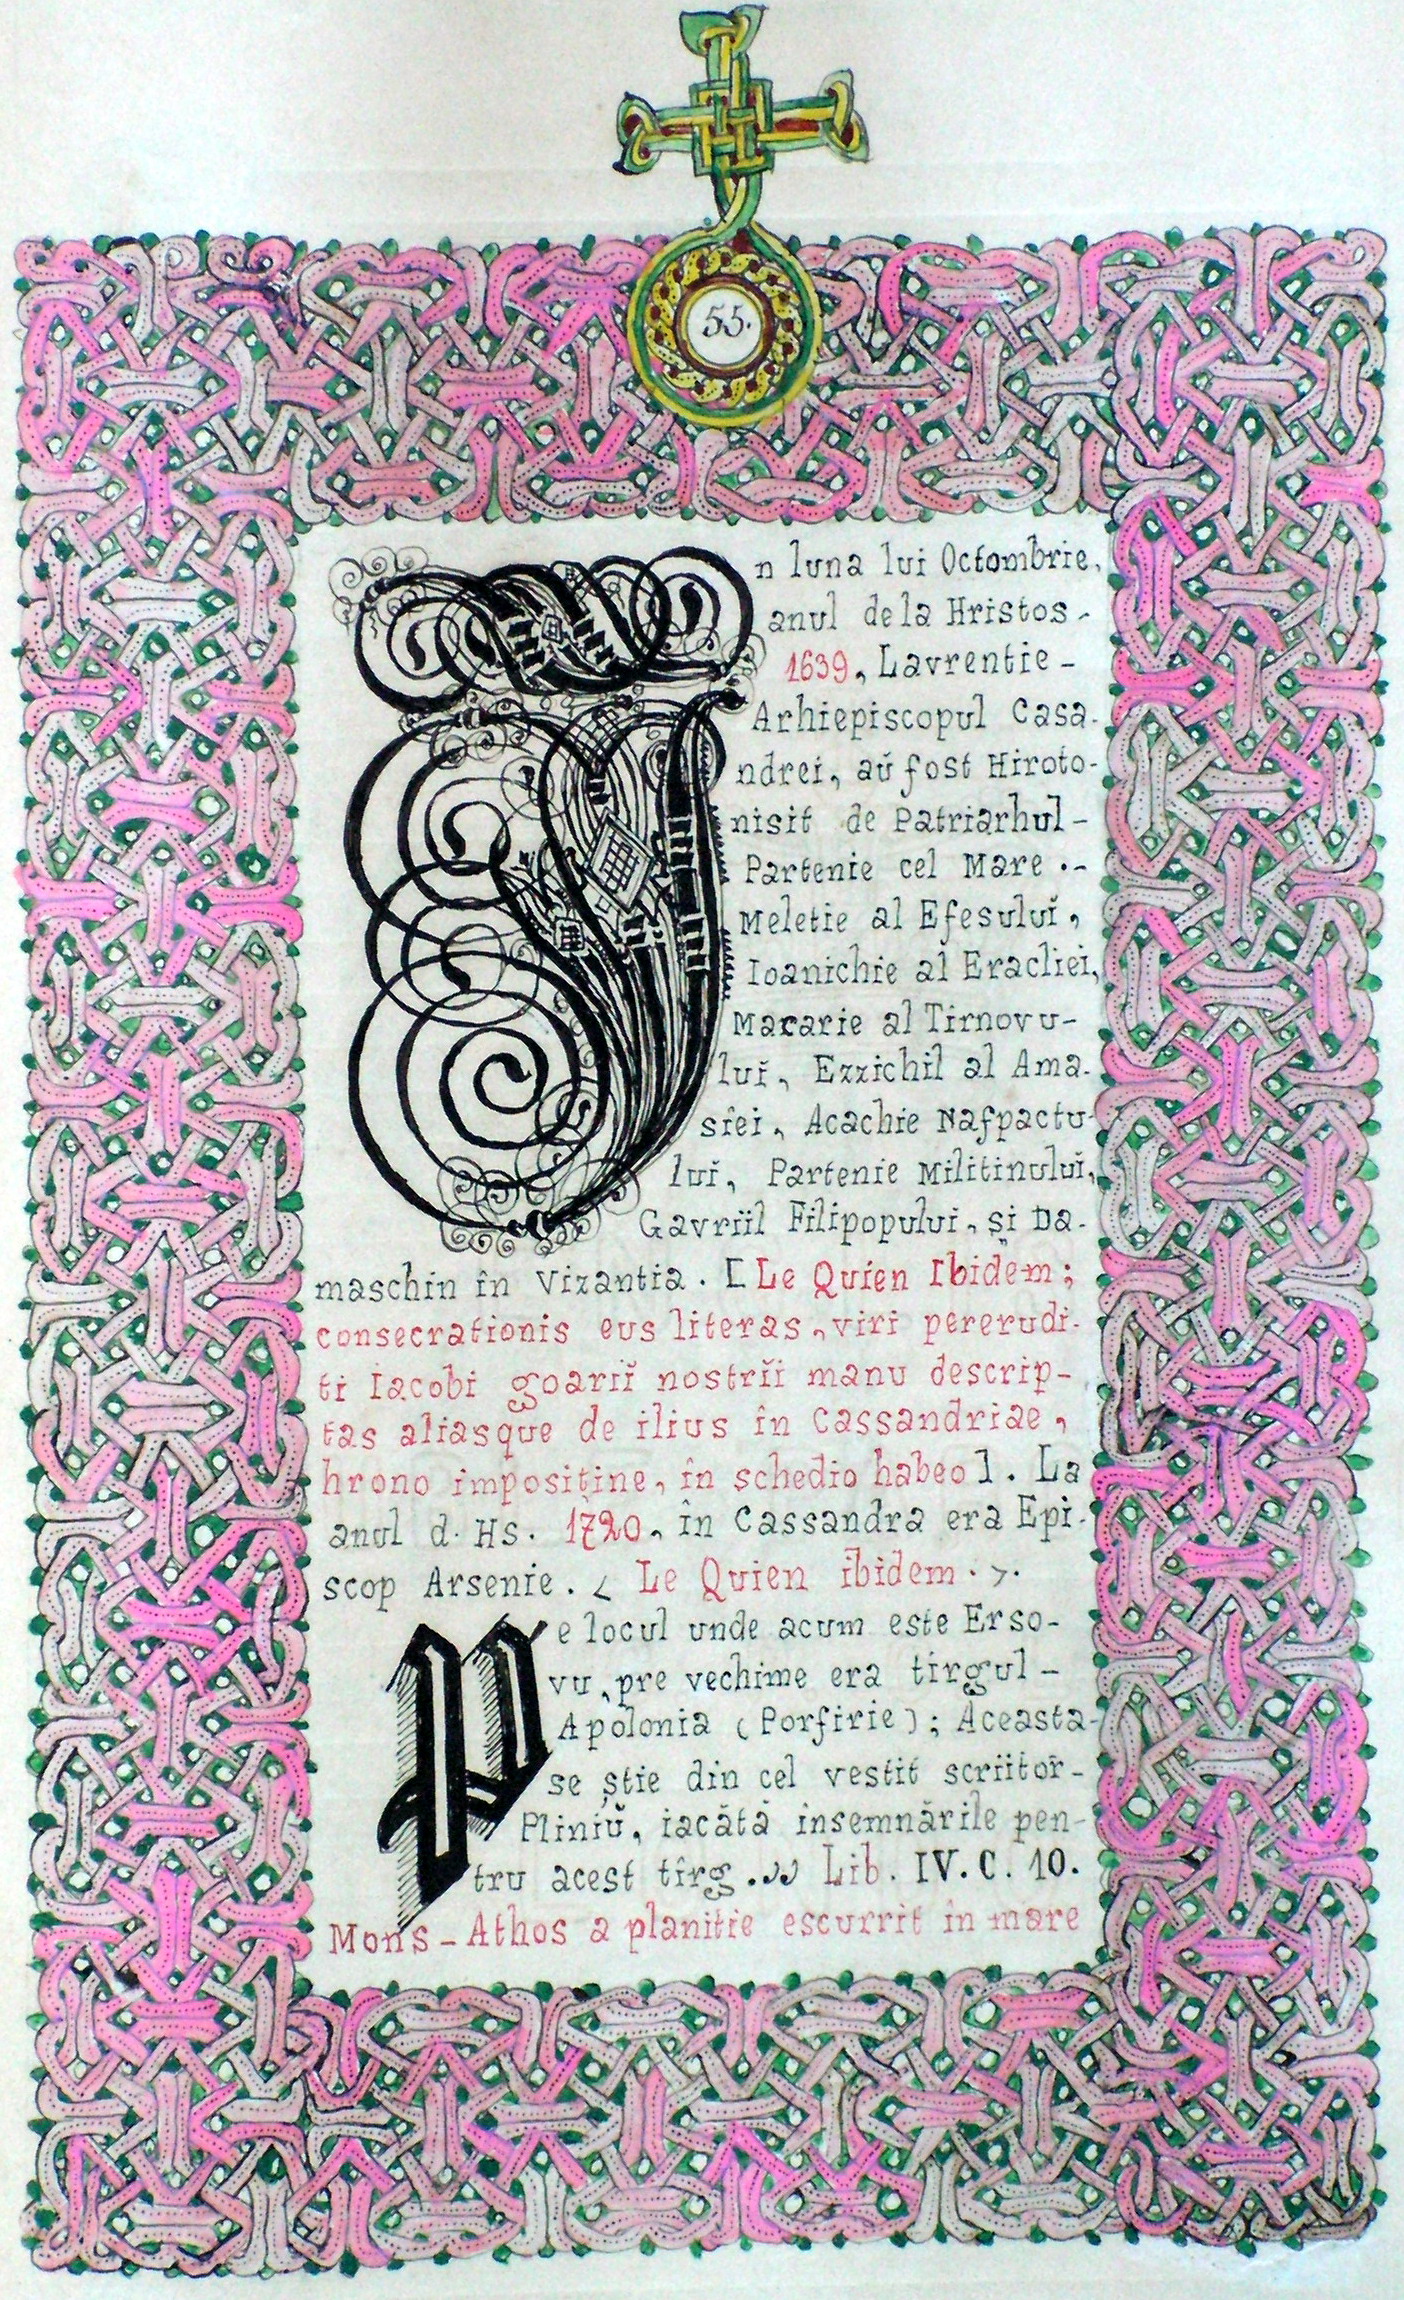 55.
În luna lui Octombrie,
anul de la Hristos -
1639, Lavrentie -
Arhiepiscopul Casa-
ndrei, aŭ fost Hiroto-
nisit de Patriarhul -
Partenie cel Mare .-
Meletie al Efesuluĭ,
Ioanichie al Eracliei,
Macarie al Tirnovu-
luĭ, Ezzichil al Ama-
siei, Acachie Nafpactu-
luĭ, Partenie Militinuluĭ,
Gavriil Filipopuluĭ, și Da-
maschin în Vizantia. [Le Quien Ibidem;
consecrationis eus literas, viri pererudi-
ti Iacobi goariĭ nostrĭi manu descrip-
tas aliasque de ilius în Cassandriae,
hrono impositine, în schedio habeo]. La
anul d. Hs. 1720, în Cassandra era Epi-
scop Arsenie. < Le Quien ibidem. >.
Pe locul unde acum este Erso-
vu, pre vechime era tîrgul -
Apolonia (Porfirie); Aceasta-
se știe din cel vestit scriitor -
Pliniŭ, iacătă însemnările pen-
tru acest tîrg... Lib. IV. C. 10.
Mons - Athos a planitie escurrit în mare